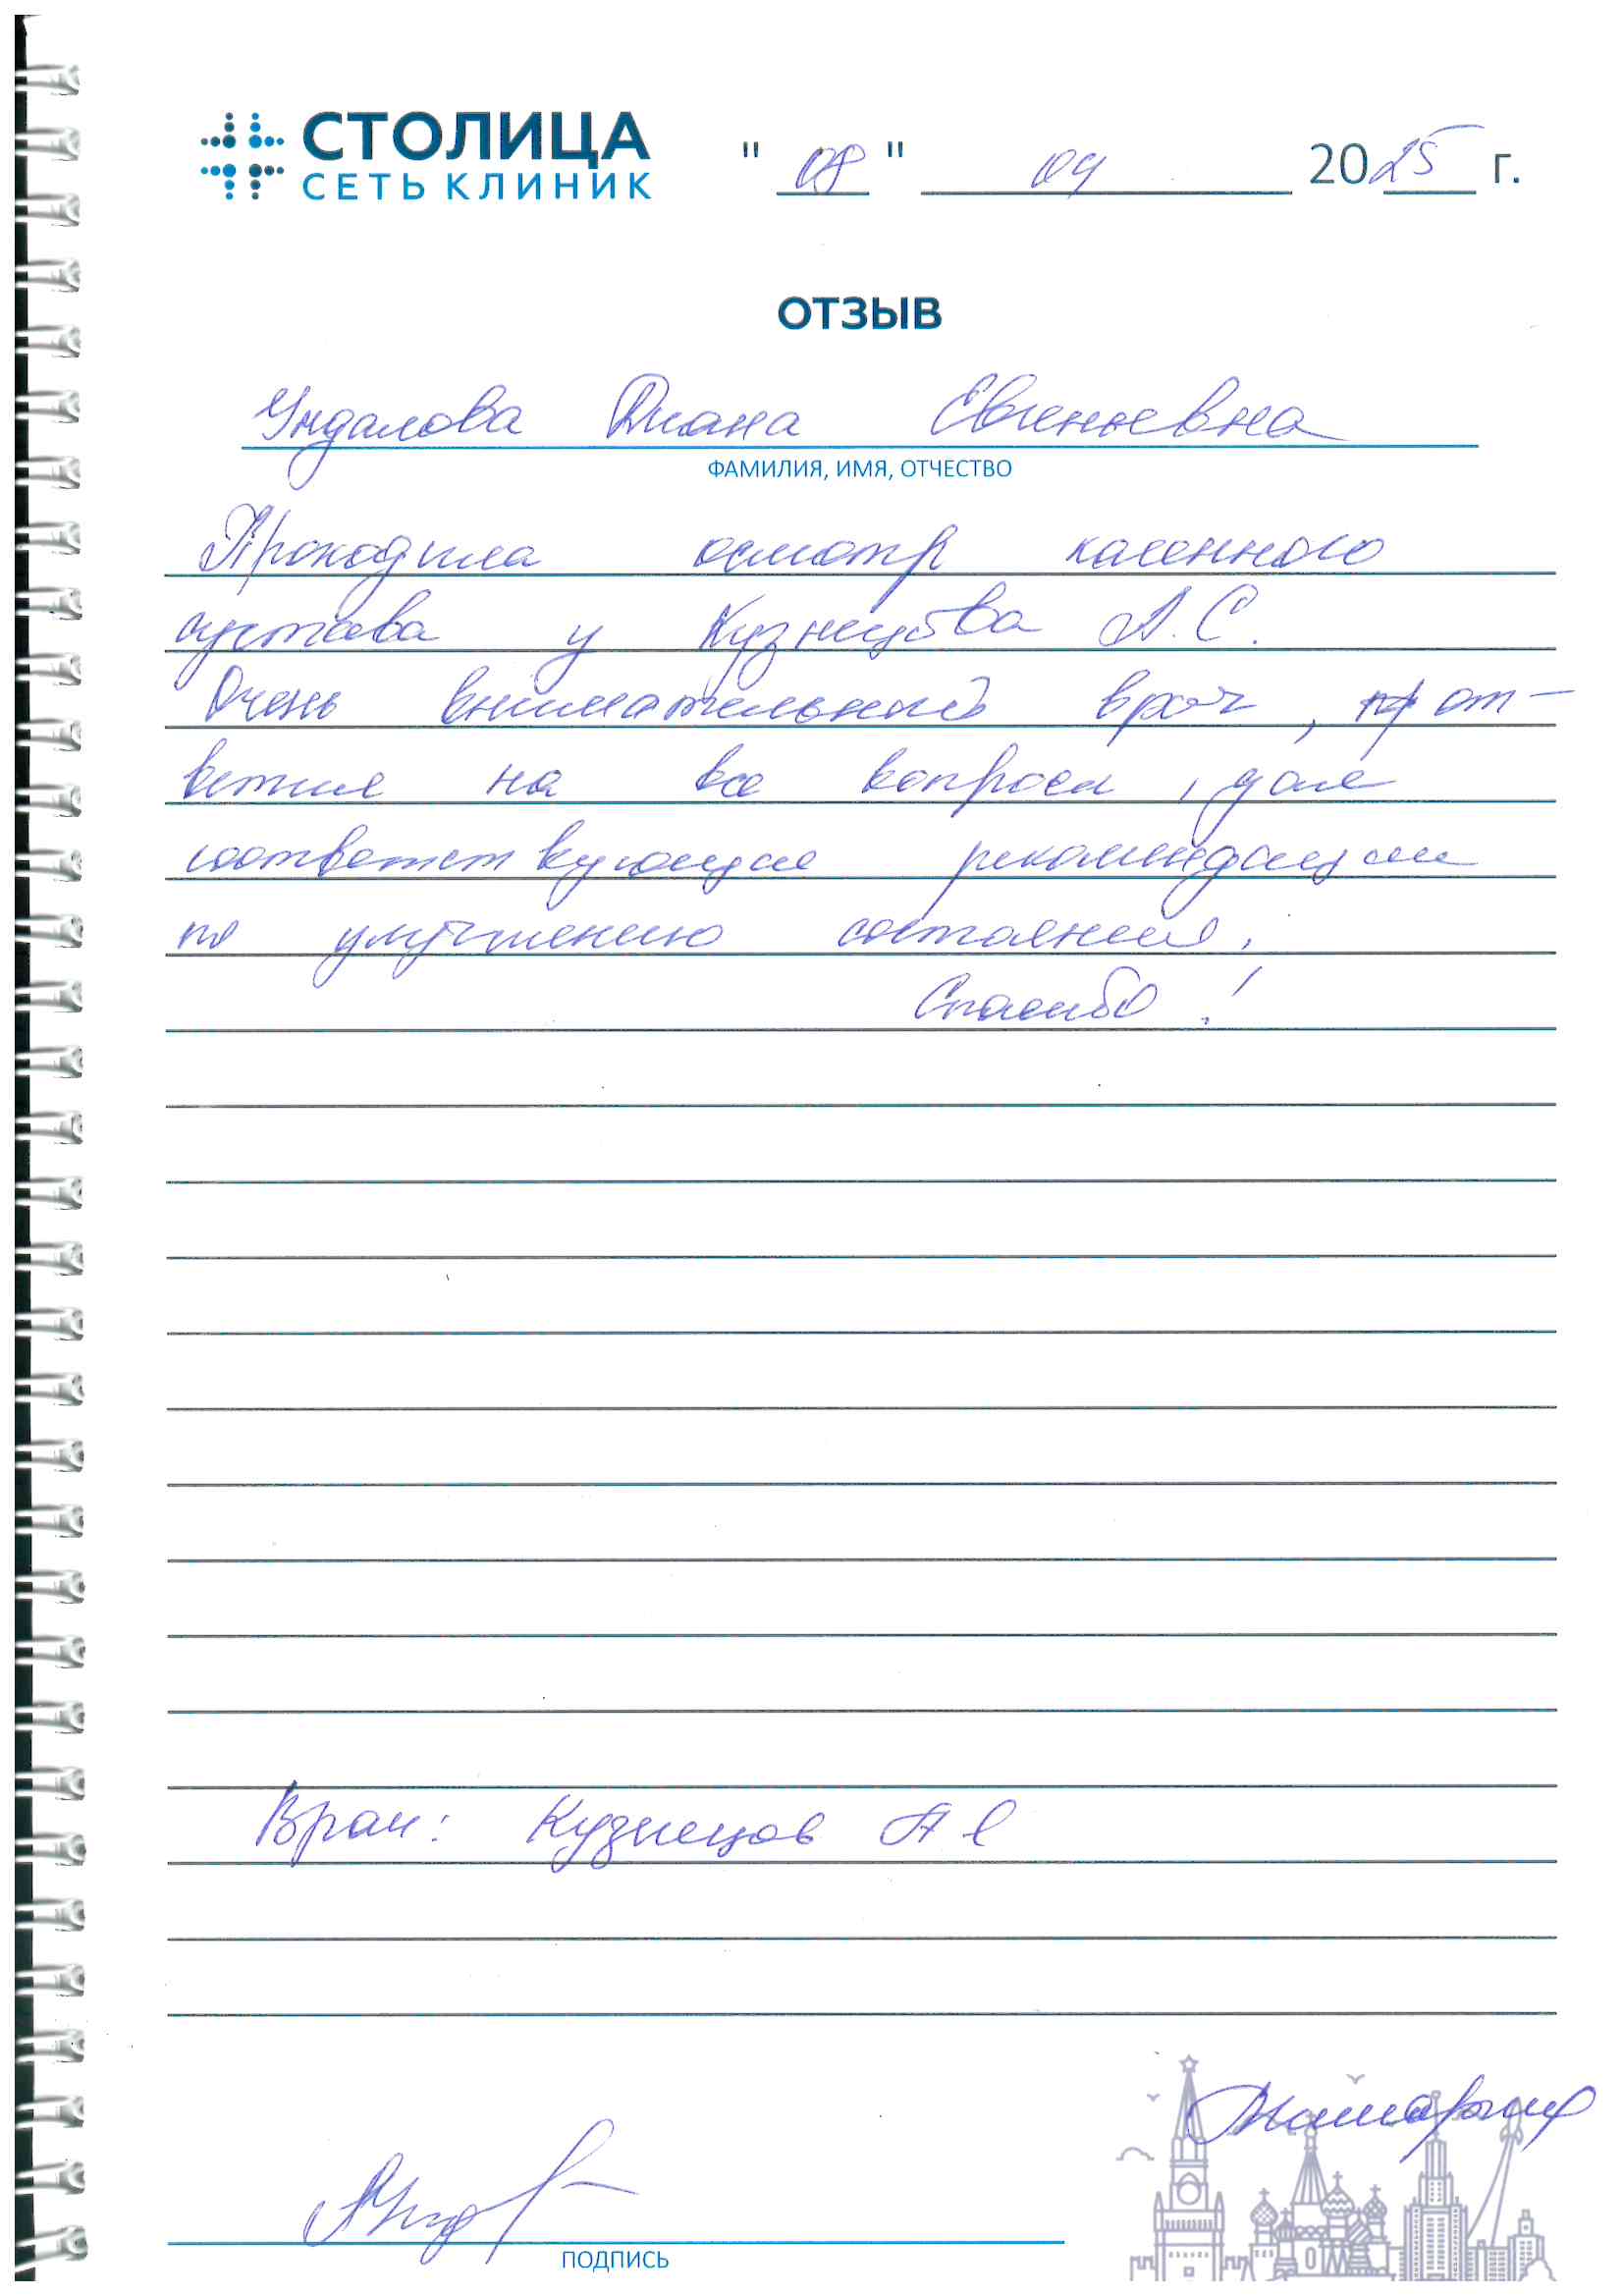 СТОЛИЦА
СЕТЬ КЛИНИК
" 08 " 04 2025 г.
ОТЗЫВ
Ундалова Диана Евгеньевна
ФАМИЛИЯ, ИМЯ, ОТЧЕСТВО
Проходила осмотр коленного
сустава у Кузнецова А.С.
Очень внимательный врач, от-
ветил на все вопросы, дал
соответствующие рекомендации
по улучшению состояния.
Спасибо!
Врач: Кузнецов А С
ПОДПИСЬ